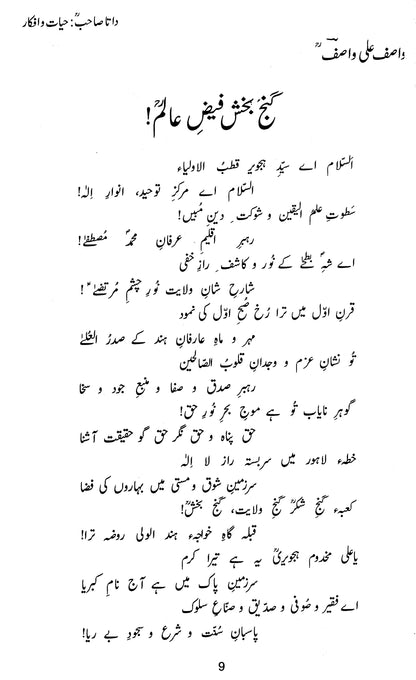 داتا صاحبؒ: حیات و افکار
واصف علی واصفؒ
گنج بخش فیضِ عالمؒ!
السّلام اے سیّدِ ہجویر قطبُ الاولیاء
السّلام اے مرکزِ توحید، انوارِ الٰہ!
سَطوتِ علم الیقین و شوکت ِ دینِ مُبیں!
رہبرِ اقلیمِ عرفانِ محمدؐ مُصطفےٰ!
اے شہِؐ بطحٰے کے نُور و کاشف ِ رازِ خفی
شارحِ شانِ ولایت نُورِ چشمِ مُرتضےٰؑ!
قرنِ اوّل میں ترا رُخ صُبحِ اوّل کی نمود
مہر و ماہِ عارفانِ ہند کے صدرُ العُلےٰ
تُو نشانِ عزم و وجدانِ قلوبُ الصّالحین
رہبرِ صدق و صفا و منبعِ جود و سخا
گوہرِ نایاب تُو ہے موجِ بحرِ نُورِ حق!
حق پناہ و حق نگر حق گو حقیقت آشنا
خطہء لاہور میں سربستہ رازِ لا الٰہ
سرزمینِ شوق و مستی میں بہاروں کی فضا
کعبہء گنجِ شکرؒ گنجِ ولایت، گنج بخشؒ!
قبلہ گاہِ خواجہء ہند الولی روضہ ترا!
یا علی مخدوم ہجویریؒ یہ ہے تیرا کرم
سرزمینِ پاک میں ہے آج نامِ کبریا
اے فقیر و صُوفی و صدّیق و صنّاعِ سلوک
پاسبانِ سُنّت و شرع و سجودِ بے ریا!
9